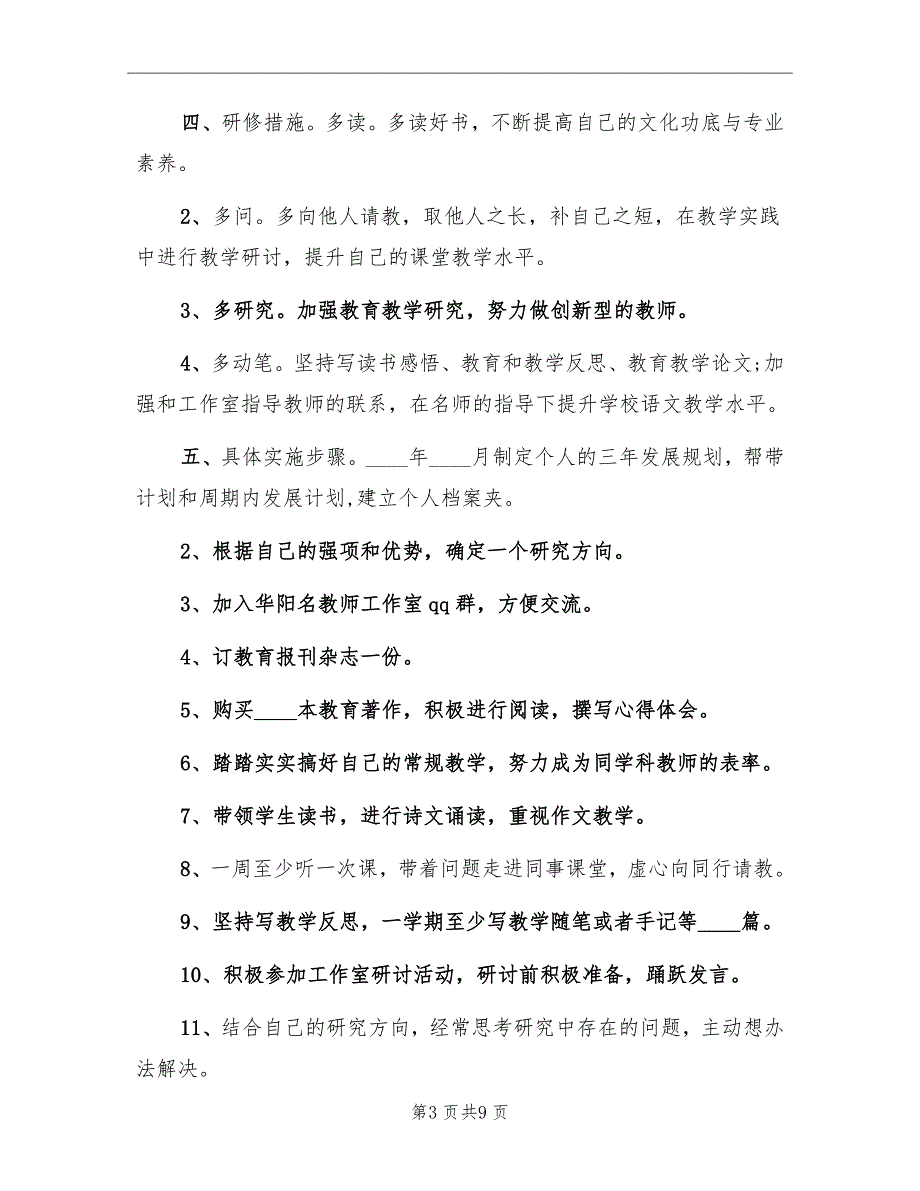 四、研修措施。多读。多读好书，不断提高自己的文化功底与专业
素养。
2、多问。多向他人请教，取他人之长，补自己之短，在教学实践
中进行教学研讨，提升自己的课堂教学水平。
3、多研究。加强教育教学研究，努力做创新型的教师。
4、多动笔。坚持写读书感悟、教育和教学反思、教育教学论文;加
强和工作室指导教师的联系，在名师的指导下提升学校语文教学水平。
五、具体实施步骤。____年____月制定个人的三年发展规划，帮带
计划和周期内发展计划,建立个人档案夹。
2、根据自己的强项和优势，确定一个研究方向。
3、加入华阳名教师工作室 qq 群，方便交流。
4、订教育报刊杂志一份。
5、购买____本教育著作，积极进行阅读，撰写心得体会。
6、踏踏实实搞好自己的常规教学，努力成为同学科教师的表率。
7、带领学生读书，进行诗文诵读，重视作文教学。
8、一周至少听一次课，带着问题走进同事课堂，虚心向同行请教。
9、坚持写教学反思，一学期至少写教学随笔或者手记等____篇。
10、积极参加工作室研讨活动，研讨前积极准备，踊跃发言。
11、结合自己的研究方向，经常思考研究中存在的问题，主动想办
法解决。
第3 页共9 页